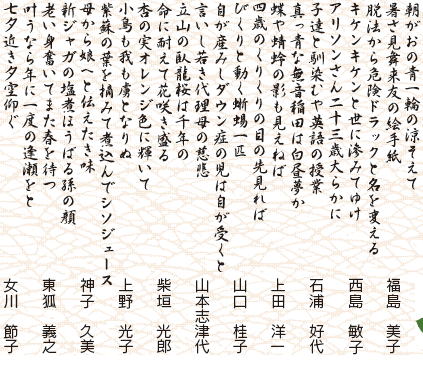 朝がおの青一輪の涼そえて
暑さ見舞来友の絵手紙
福島 美子
脱法から危険ドラックと名を変える
キケンキケンと世に滲みてゆけ
西島 敏子
アリソンさん二十三歳大らかに
子達と馴染むや英語の授業
石浦 好代
真っ青な無音稲田は白昼夢か
蝶や蜻蛉の影も見えねば
上田 洋一
四歳のくりくりの目の先見れば
びくりと動く蜥蜴一匹
山口 桂子
自が産みしダウン症の児は自が受くと
言いし若き代理母の慈悲
山本志津代
立山の臥龍桜は千年の
命に耐えて花咲き盛る
柴垣 光郎
杏の実オレンジ色に輝いて
小鳥も我も虜となりぬ
上野 光子
紫蘇の葉を摘みて煮込んでシソジュース
母から娘へと伝えたき味
神子 久美
新ジャガの塩煮ほうばる孫の顔
老い身奮いてまた春を待つ
東狐 義之
叶うなら年に一度の逢瀬をと
七夕近き夕空仰ぐ
女川 節子